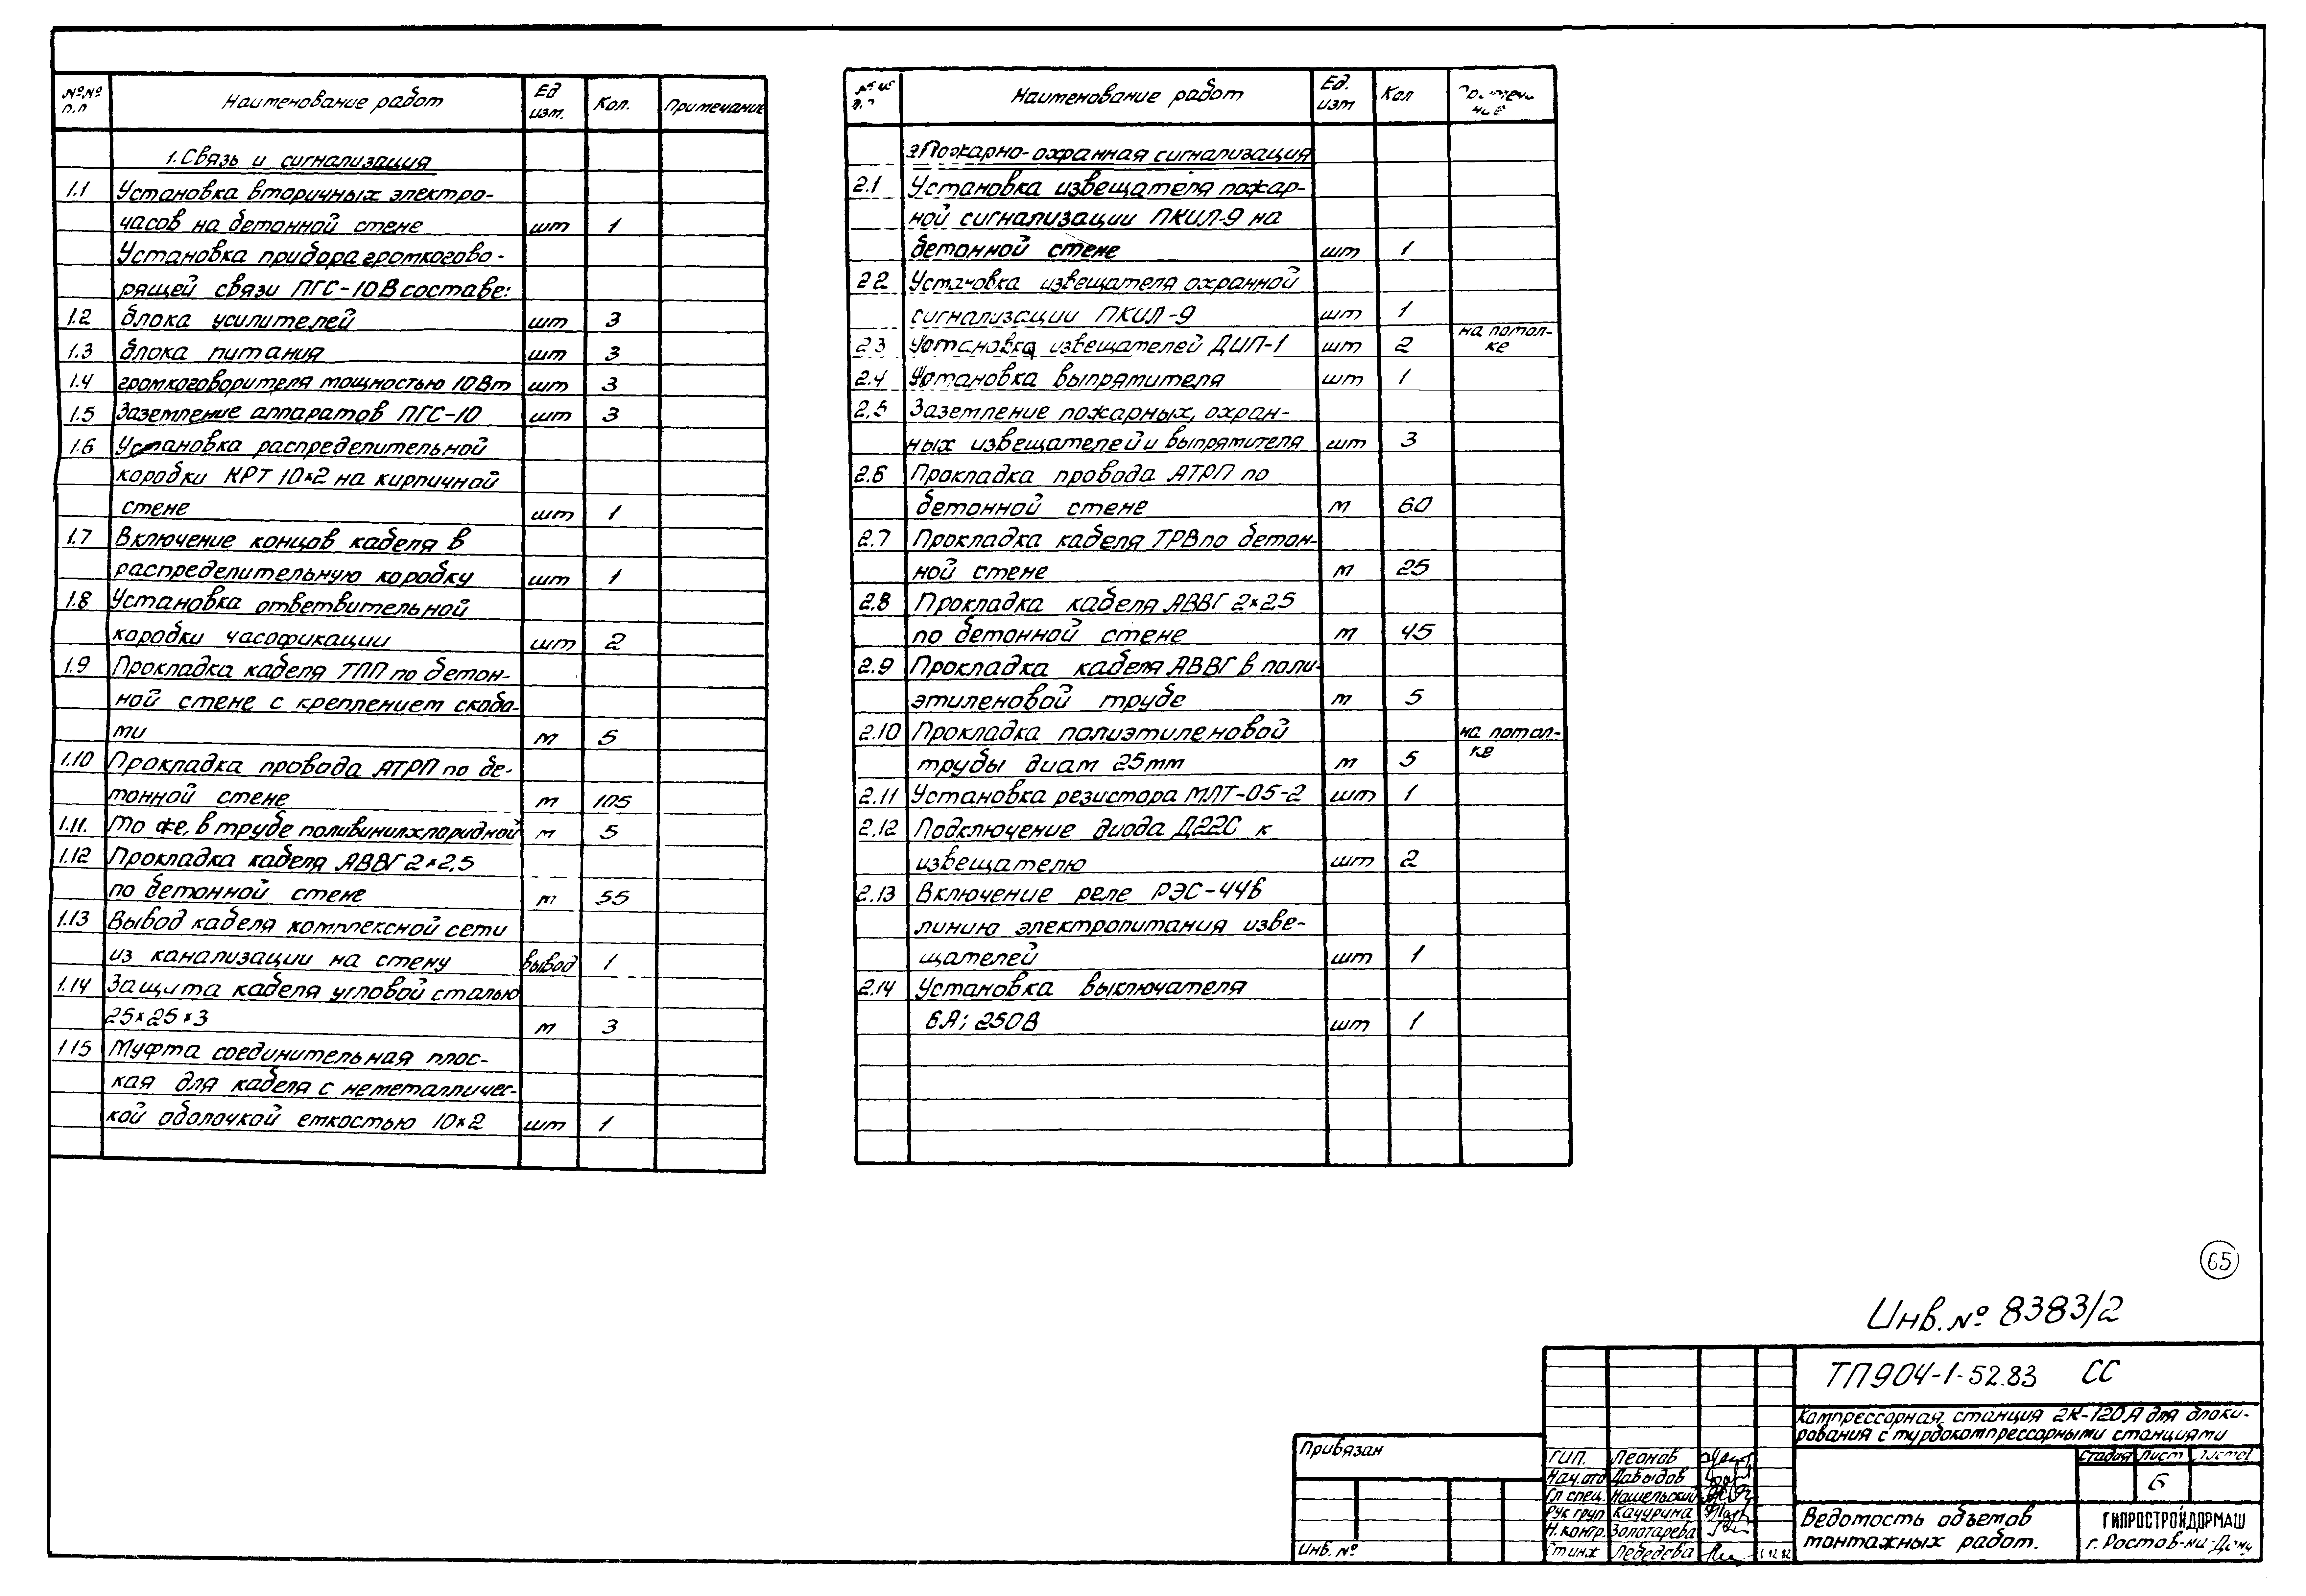 №№ Наименование работ Ед Кол. Примечание
п.п изм.
1. Связь и сигнализация
1.1 Установка вторичных электро-
часов на бетонной стене шт 1
Установка прибора громкогово-
рящей связи ПГС-10 В составе:
1.2 блока усилителей шт 3
1.3 блока питания шт 3
1.4 громкоговорителя мощностью 10Вт шт 3
1.5 Заземление аппаратов ПГС-10 шт 3
1.6 Установка распределительной
коробки КРТ 10×2 на кирпичной
стене шт 1
1.7 Включение концов кабеля в
распределительную коробку шт 1
1.8 Установка ответвительной
коробки часофикации шт 2
1.9 Прокладка кабеля ТПП по бетон-
ной стене с креплением скоба-
ми м 5
1.10 Прокладка провода АТРП по бе-
тонной стене м 105
1.11. То же, в трубе поливинилхлоридной м 5
1.12 Прокладка кабеля АВВГ 2×2,5
по бетонной стене м 55
1.13 Вывод кабеля комплексной сети
из канализации на стену вывод 1
1.14 Защита кабеля угловой сталью
25×25×3 м 3
1.15 Муфта соединительная плос-
кая для кабеля с неметалличес-
кой оболочкой емкостью 10×2 шт 1
№№ Наименование работ Ед. Кол Примеча
п.п изм ние
2 Пожарно-охранная сигнализация
2.1 Установка извещателя пожар-
ной сигнализации ПКИЛ-9 на
бетонной стене шт 1
2.2 Установка извещателя охранной
сигнализации ПКИЛ-9 шт 1
2.3 Установка извещателей ДИП-1 шт 2 на потол-
ке
2.4 Установка выпрямителя шт 1
2.5 Заземление пожарных, охран-
ных извещателей и выпрямителя шт 3
2.6 Прокладка провода АТРП по
бетонной стене м 60
2.7 Прокладка кабеля ТРВ по бетон-
ной стене м 25
2.8 Прокладка кабеля АВВГ 2×2,5
по бетонной стене м 45
2.9 Прокладка кабеля АВВГ в поли-
этиленовой трубе м 5
2.10 Прокладка полиэтиленовой на потол-
трубы диам 25мм м 5 ке
2.11 Установка резистора МЛТ-05-2 шт 1
2.12 Подключение диода Д22С к
извещателю шт 2
2.13 Включение реле РЭС-44 в
линию электропитания изве-
щателей шт 1
2.14 Установка выключателя
6А; 250В шт 1
65
Инв. № 8383/2
ТП904-1-52.83 СС
Компрессорная станция 2К-120А для блоки-
рования с турбокомпрессорными станциями
Привязан
Инв. №
ГИП. Леонов
Нач.отд Давыдов
Гл спец. Нашельский
Рук груп Качурина
Н. контр. Золотарева
Ст инж Лебедева
Стадия Лист Листов
6
Ведомость объемов
монтажных работ.
ГИПРОСТРОЙДОРМАШ
г. Ростов-на-Дону